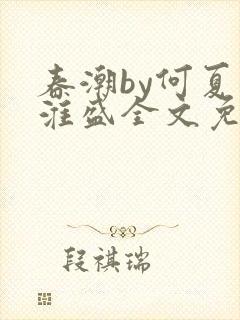 春潮by何夏
淮盛全文免
段祺瑞